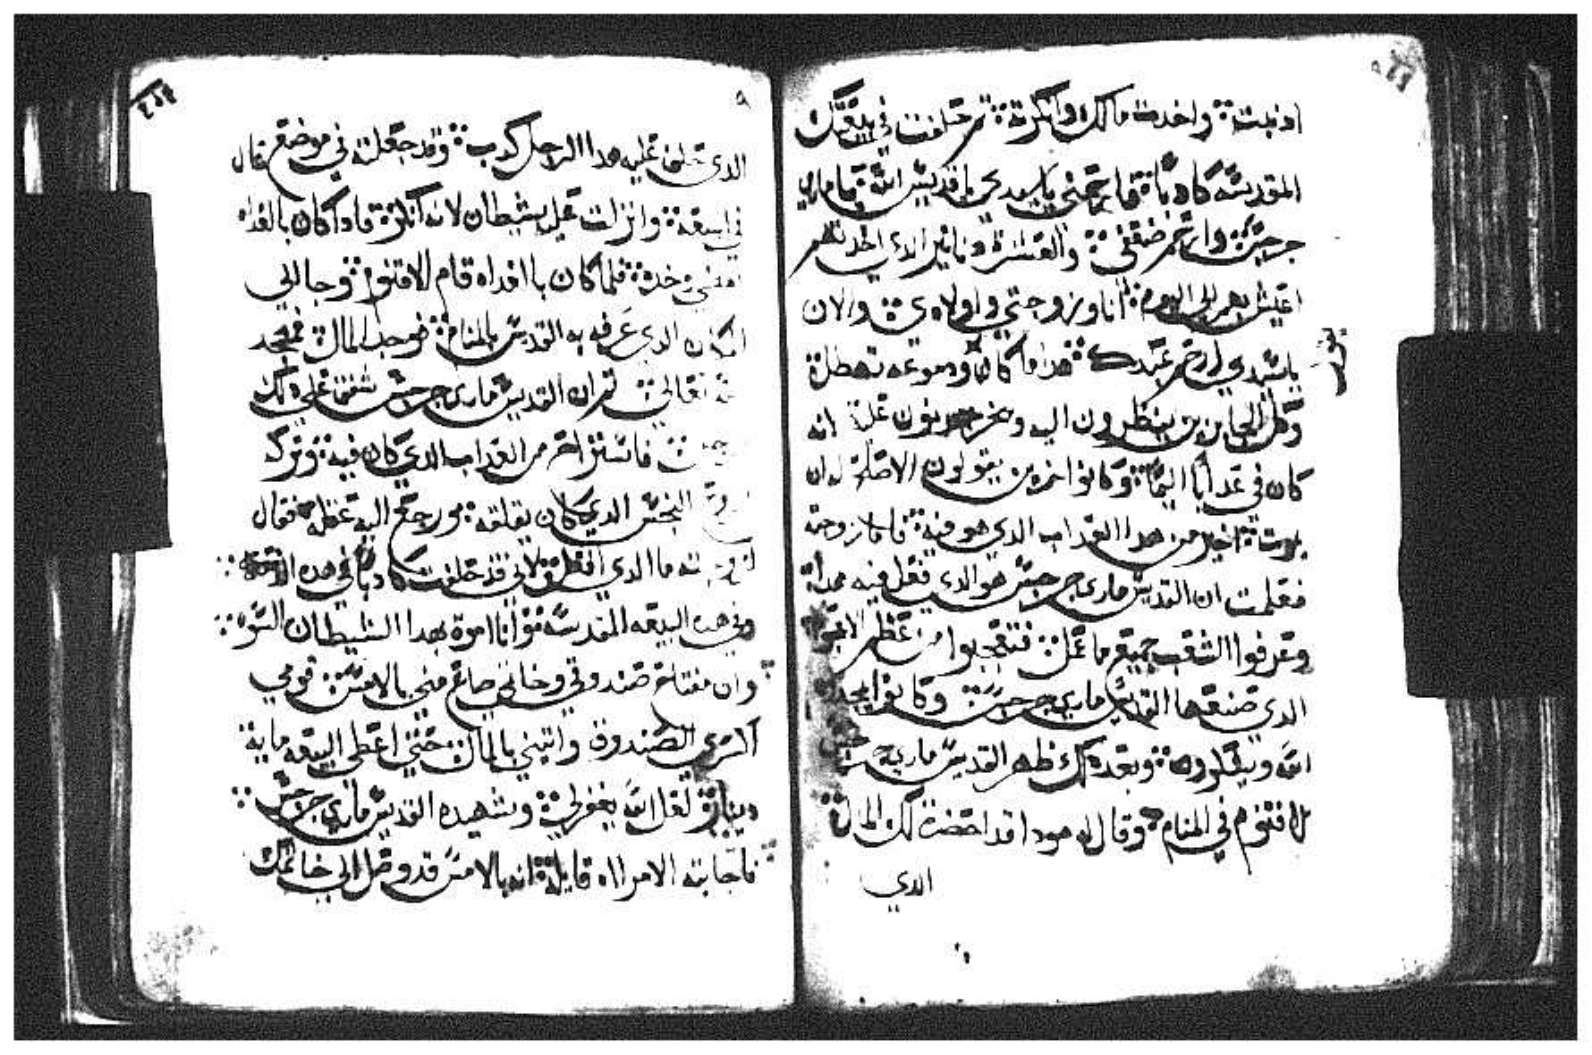 ادنبت واخدت مالك وانكرته ثم حلفت في بيعتك
المقدسه كادبا فارحمني ياسيدي ياقديس الله ياماري
جرجس وارحم ضعفي والعشرة دنانير الدي اخدتهم
اعيش بهم الي اليوم انا وزوجتي واولادي والان
ياسيدي ارحم عبدك هدا ودموعه تهطل
وكل الحاضرين ينظرون اليه ويحزنون عليه انه
كان في عداب اليم وكانوا اخرين يقولون الاصلح له ان
يموت اخير من هدا العداب الدي هو فيه فاما زوجته
فعلمت ان القديس ماري جرجس هو الدي فعل فيه هدا
وعرفوا الشعب جميع ما عمل فتعجبوا من عظم الاعجوبه
الدي صنعها القديس ماري جرجس وكانوا يمجدوا
الله ويشكروه وبعد دلك ظهر القديس ماري جرجس
للاقنوم في المنام وقال له هودا قد احضرت لك المال
الدي
الدي حلف عليه هدا الرجل كدب وقد جعلته في موضع
في البيعه وانزلت عليه شيطان لانه انكره فادا كان بالغداه
امضي وخده فلما كان باالغداه قام الاقنوم وجا الي
المكان الدي عرفه به القديس بالمنام فوجد المال فمجد
الله تعالي ثم ان القديس ماري جرجس شفق علي دلك
فاستراح من العداب الدي كان فيه وتركه
الروح النجس الدي كان يقلقه ورجع اليه عقله فقال
لزوجته ما الدي افعل لاني قد حلفت كادبا في هده
وفي هده البيعه المقدسه وانا اموت بهدا الشيطان السوه
وان مفتاح صندوقي وخاتمي ضاع مني بالامس قومي
اكسري الصندوق واتيني بالمال حتي اعطي البيعه مايه
دينار لعل الله يغفر لي وشهيده القديس ماري جرجس
فاجابته الامراه قايله انه بالامس قد وصل الي خاتمك